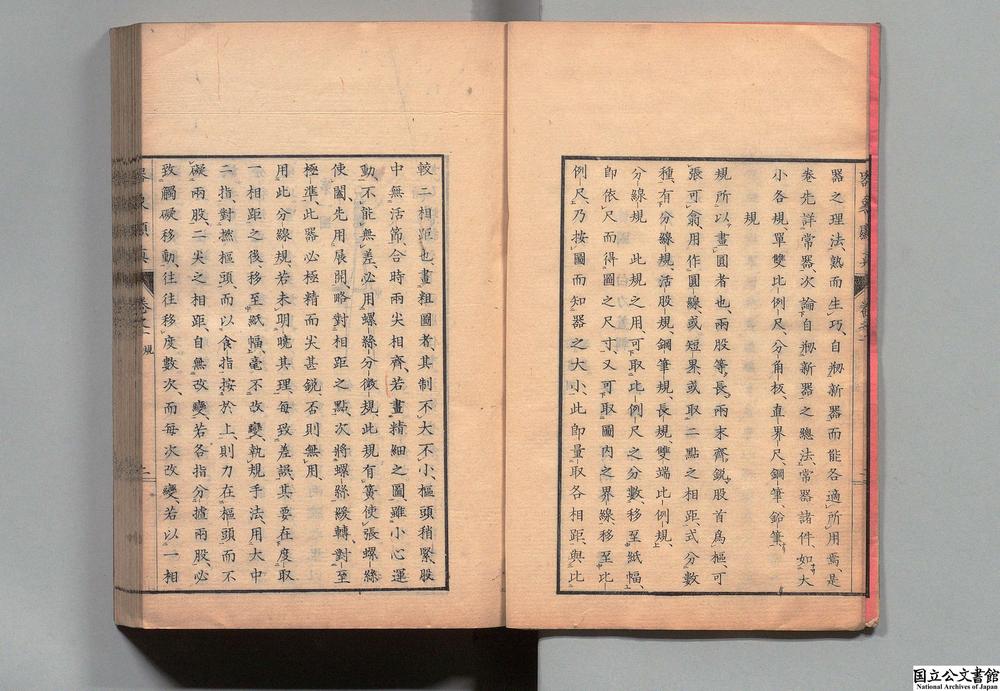 器之理法、熟而生巧、自剏新器而能各適所用焉、是
卷先詳常器、次論自剏新器之總法、常器諸件、如大
小各規、單雙比例尺、分角板、直界尺、鋼筆、鉛筆、
規
規所以畫圓者也、兩股等長、兩末齊銳、股首爲樞、可
張可翕、用作圓線、或短界或取二點之相距、式分數
種、有分線規、活股規、鋼筆規、長規、雙端比例規、
分線規　此規之用、可取比例尺之分數、移至紙幅、
卽依尺而得圖之尺寸、又可取圖內之界線、移至比
例尺、乃按圖而知器之大小、此卽量取各相距與比
較二相距也、畫粗圖者其制不大不小、樞頭稍緊、股
中無活節、合時兩尖相齊、若畫精細之圖、雖小心運
動、不能無差、必用螺絲分微規、此規有簧使張、螺絲
使闔、先用展開、略對相距之點、次將螺絲緩轉、對至
極準、此器必極精而尖甚銳、否則無用、
用此分線規、若未明曉其理、每致差誤、其要在度取
一相距之後、移至紙幅、毫不改變、執規手法、用大中
二指、對撚樞頭、而以食指按於上、則力在樞頭而不
礙兩股、二尖之相距、自無改變、若各指分攄兩股、必
致觸礙移動、往往移度數次、而每次改變、若以一相
器象顯真
卷之一
規
二